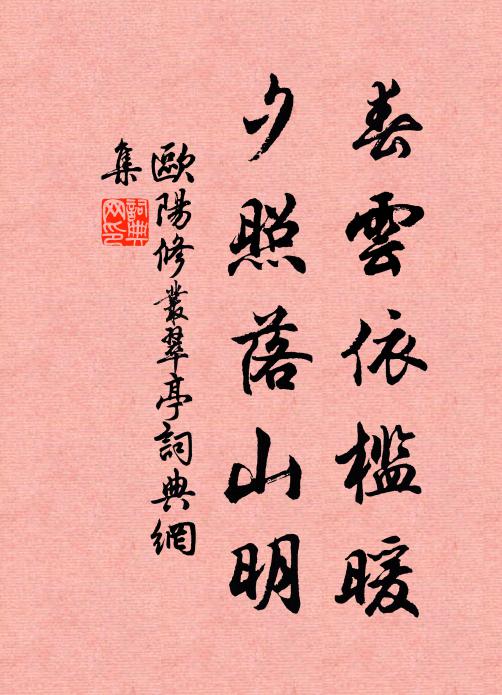 春雲依檻暖
夕照落山明
歐陽修叢翠亭詞典網
集
詞典网印